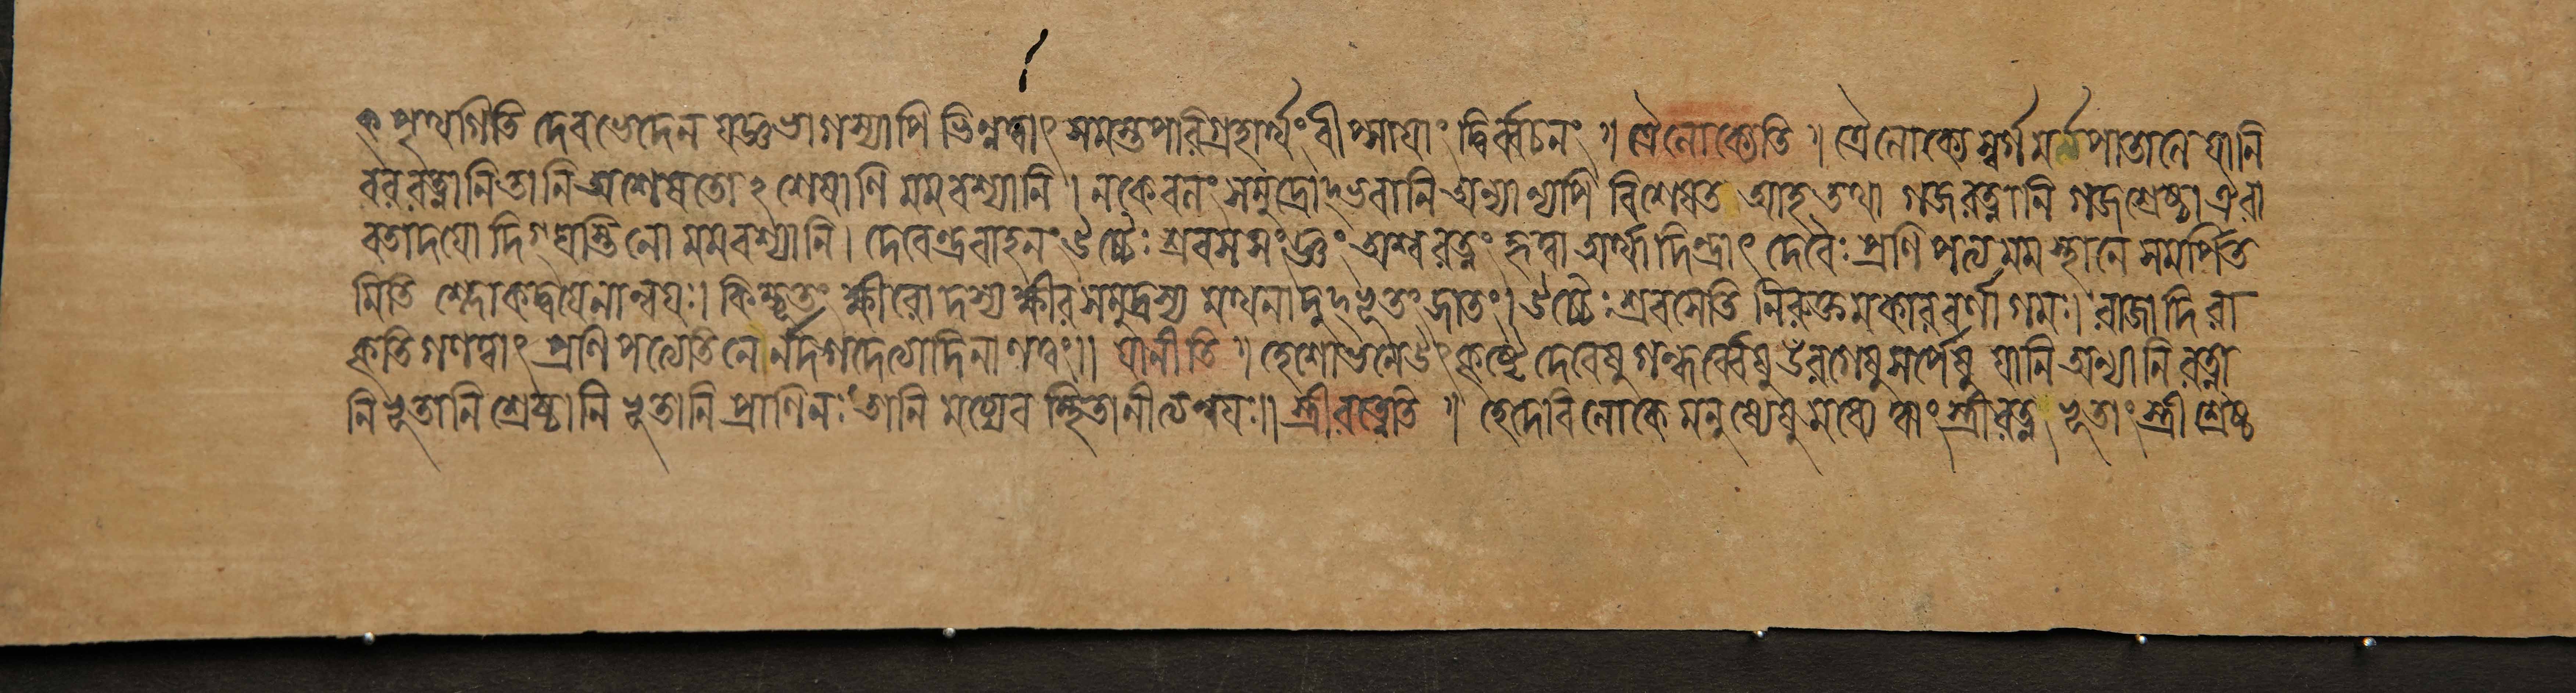 ক পৃথগিতি দেবভেদেন যজ্ঞভাগস্যাপি ভিন্নত্বাৎ সমস্তপরিগ্রহার্থং বীপ্সাযাং দ্বির্ব্বচনং ॥ ত্রৈলোক্যেতি ॥ ত্রৈলোক্যে স্বর্গমর্ত্যপাতালে যানি
বররত্নানি তানি অশেষতোঽশেষাণি মমবশ্যানি । নকেবলং সমুদ্রোদ্ভবানি অন্যান্যপি বিশেষত আহ তথা গজরত্নানি গজশ্রেষ্ঠা ঐরা
বতাদযো দিগ্ঘস্তিনো মমবশ্যানি । দেবেন্দ্রবাহনং উচ্চৈঃশ্রবসসংজ্ঞং অশ্বরত্নং হৃত্বা অর্থাদিন্দ্রাৎ দেবৈঃ প্রণিপত্য মম স্থানে সমর্পিত
মিতি শ্লোকদ্বযেনান্বযঃ। কিম্ভূতং ক্ষীরোদস্য ক্ষীরসমুদ্রস্য মথনাদুদ্ভূতং জাতং। উচ্চৈঃশ্রবসেতি নিরুক্তমকারবর্ণাগমঃ। রাজাদিরা
কৃতিগণত্বাৎ প্রণিপত্যেতি নের্নদগদেত্যাদিনা ণত্বং॥ যানীতি ॥ হেশোভনে উৎকৃষ্টে দেবেষু গন্ধর্ব্বেষু উরগেষু সর্পেষু যানি অন্যানি রত্না
নি ভূতানি শ্রেষ্ঠানি ভূতানি প্রাণিনঃ তানি ময্যেব স্থিতানীত্যন্বযঃ॥ স্ত্রীরত্নেতি ॥ হেদেবি লোকে মনুষ্যেষু মধ্যে ত্বাং স্ত্রীরত্নভূতাং স্ত্রীশ্রেষ্ঠ